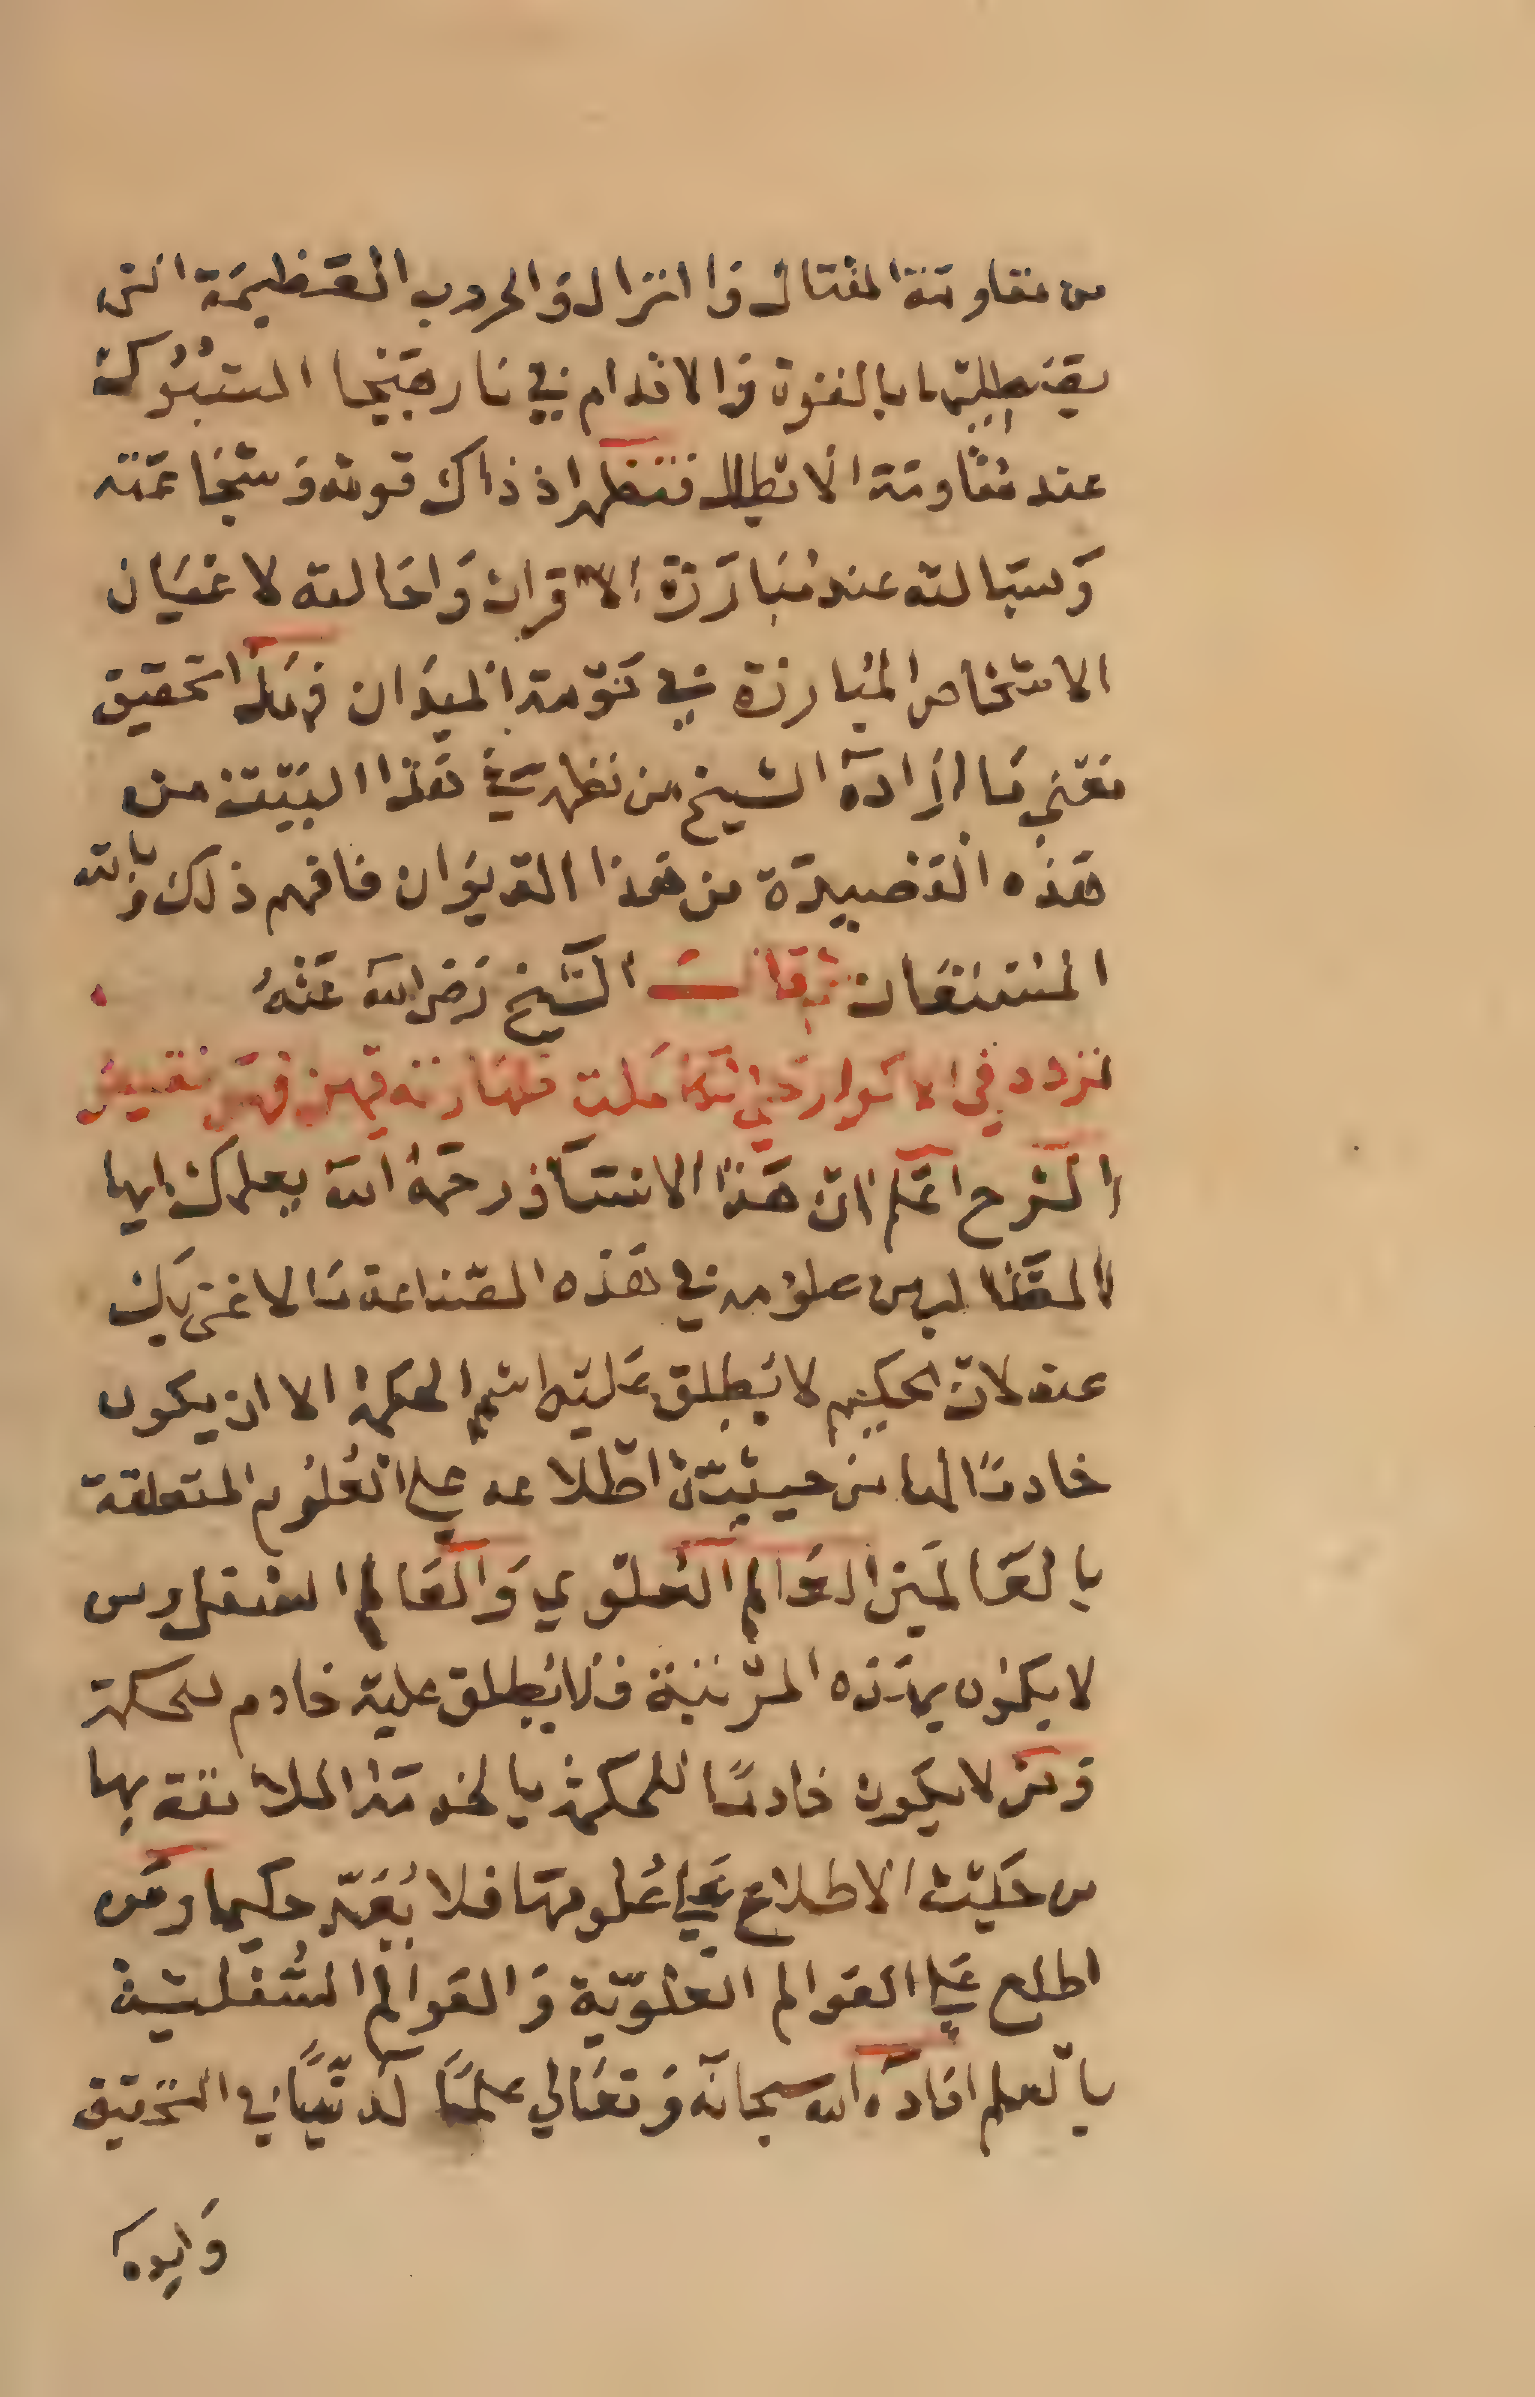 من مقاومة القتال والنزال والحروب العظيمة التي
بالقوة والاقدام في نار هيجا
عند مقاومة الابطال فتظهر اذ ذاك قوته وشجاعته
وبسالته عند مبارزة الاقران واحالته لاعيان
الاشخاص المبارزة في حومة الميدان فهذا تحقيق
معني ما اراده الشيخ من نظمه في هذا البيت من
هذه القصيدة من هذا الديوان فافهم ذلك وبالله
المستعان ثم قال الشيخ رضي الله عنه
تردد في الاكوار حتي تكاملت
الشرح اعلم ان هذا الاستاذ رحمه الله يعلمك ايها
الطالب من علومه في هذه الصناعة ما لا غني لك
عنه لان الحكيم لا يطلق عليه اسم الحكمة الا ان يكون
خادما لها من حيثية اطلاعه علي العلوم المتعلقة
بالعالمين العالم العلوي والعالم السفلي ومن
لا يكون بهذه المرتبة فلا يطلق عليه خادم للحكمة
ومن لا يكون خادما للحكمة بالخدمة اللائقة بها
من حيث الاطلاع علي علومها فلا يعد حكيما ومن
اطلع علي العوالم العلوية والعوالم السفلية
بالعلم افاده الله سبحانه وتعالي علما لدنيا في التحقيق
وايده